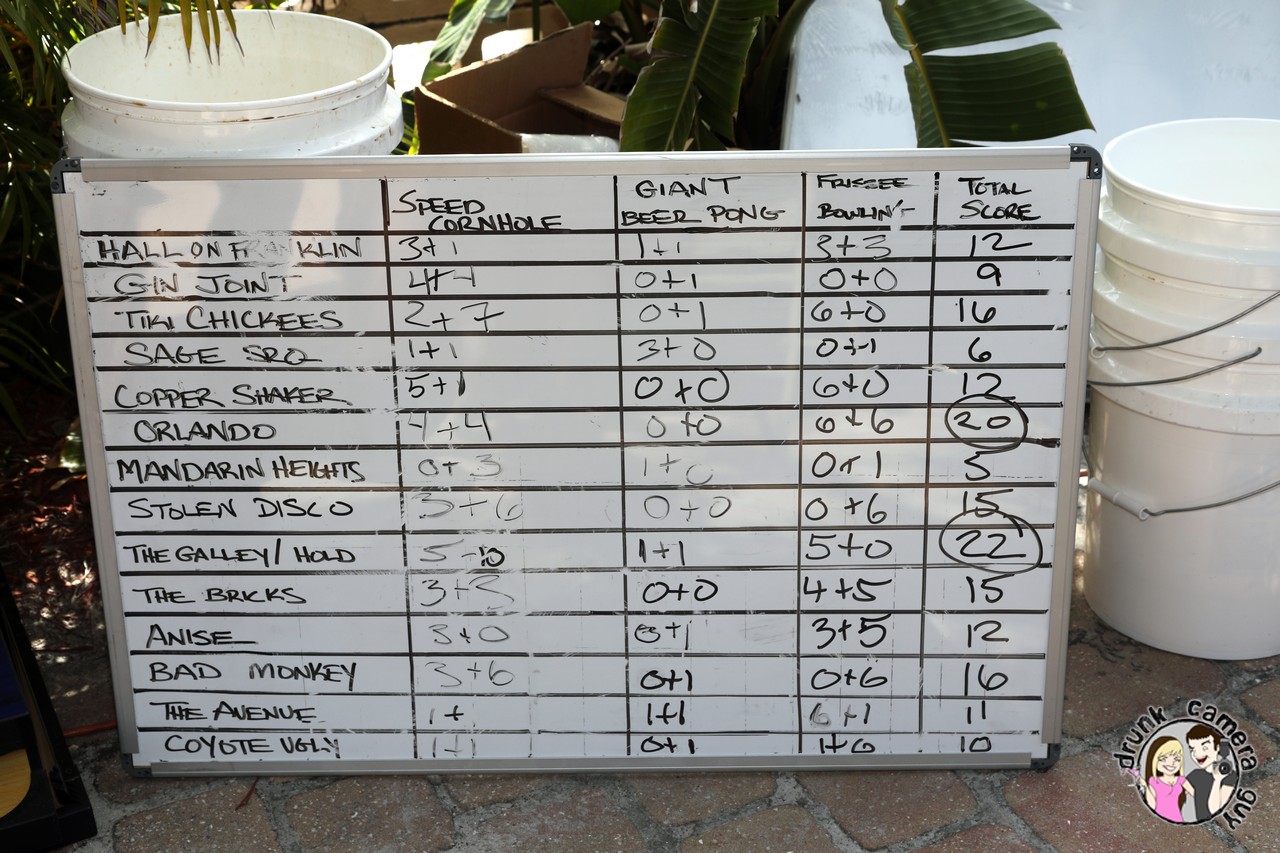 SPEED CORNHOLE GIANT BEER PONG FRISBEE BOWLIN'- TOTAL SCORE
HALL ON FR NKLIN 3+1 1+1 3+3 12
GIN JOINT 4+4 0+1 0+0 9
TIKI CHICKEES 2+7 0+1 6+0 16
SAGE SRQ 1+1 3+0 0+1 6
COPPER SHAKER 5+1 0+0 6+0 12
ORLANDO 4+4 0+0 6+6 20
MANDARIN HEIGHTS 0+3 1+0 0+1 5
STOLEN DISCO 3+6 0+0 0+6 15
THE GALLEY/HOLD 5+10 1+1 5+0 22
THE BRICKS 3+3 0+0 4+5 15
ANISE 3+0 0+1 3+5 12
BAD MONKEY 3+6 0+1 0+6 16
THE AVENUE 1+ 1+1 6+1 11
COYOTE UGLY 1+1 0+1 1+6 10
drunk camera guy